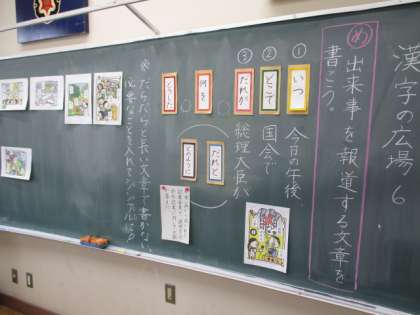 漢字の広場6
め
出来事を報道する文章を
書こう。
① いつ
今日の午後、
② どこで
国会で
③ だれが
総理大臣が
何を
どうした
だれと
どのように
※だらだらと長い文章で書かない。
必要なことを入れてシンプルに